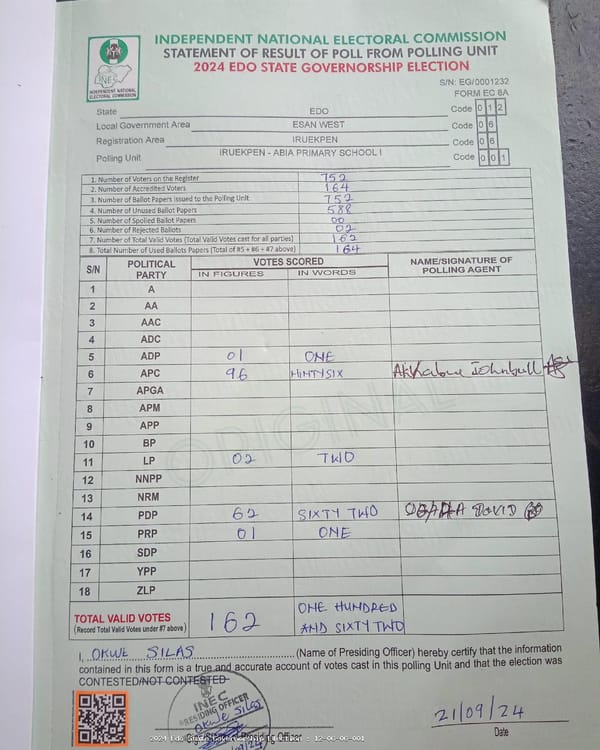 INDEPENDENT NATIONAL ELECTORAL COMMISSION
STATEMENT OF RESULT OF POLL FROM POLLING UNIT
2024 EDO STATE GOVERNORSHIP ELECTION
INEC
INDEPENDENT NATIONAL
ELECTORAL COMMISSION
S/N: EG/0001232
FORM EC 8A
State EDO Code 0 1 2
Local Government Area ESAN WEST Code 0 6
Registration Area IRUEKPEN Code 0 6
Polling Unit IRUEKPEN - ABIA PRIMARY SCHOOL I Code 0 0 1
1. Number of Voters on the Register 752
2. Number of Accredited Voters 164
3. Number of Ballot Papers Issued to the Polling Unit 752
4. Number of Unused Ballot Papers 588
5. Number of Spoiled Ballot Papers 00
6. Number of Rejected Ballots 02
7. Number of Total Valid Votes (Total Valid Votes cast for all parties) 162
8. Total Number of Used Ballots Papers (Total of #5 + #6 + #7 above) 164
S/N POLITICAL PARTY VOTES SCORED NAME/SIGNATURE OF POLLING AGENT
IN FIGURES IN WORDS
1 A
2 AA
3 AAC
4 ADC
5 ADP 01 ONE
6 APC 96 Johnbull
7 APGA
8 APM
9 APP
10 BP
11 LP 02 TWO
12 NNPP
13 NRM
14 PDP 62 SIXTY TWO DAVID
15 PRP 01 ONE
16 SDP
17 YPP
18 ZLP
ORIGINAL
TOTAL VALID VOTES 162 ONE HUNDRED
(Record Total Valid Votes under #7 above) AND SIXTY TWO
I, OKWE SILAS (Name of Presiding Officer) hereby certify that the information
contained in this form is a true and accurate account of votes cast in this polling Unit and that the election was
CONTESTED/NOT CONTESTED
INEC
PRESIDING OFFICER
OKWE SILAS
21/09/24
Date